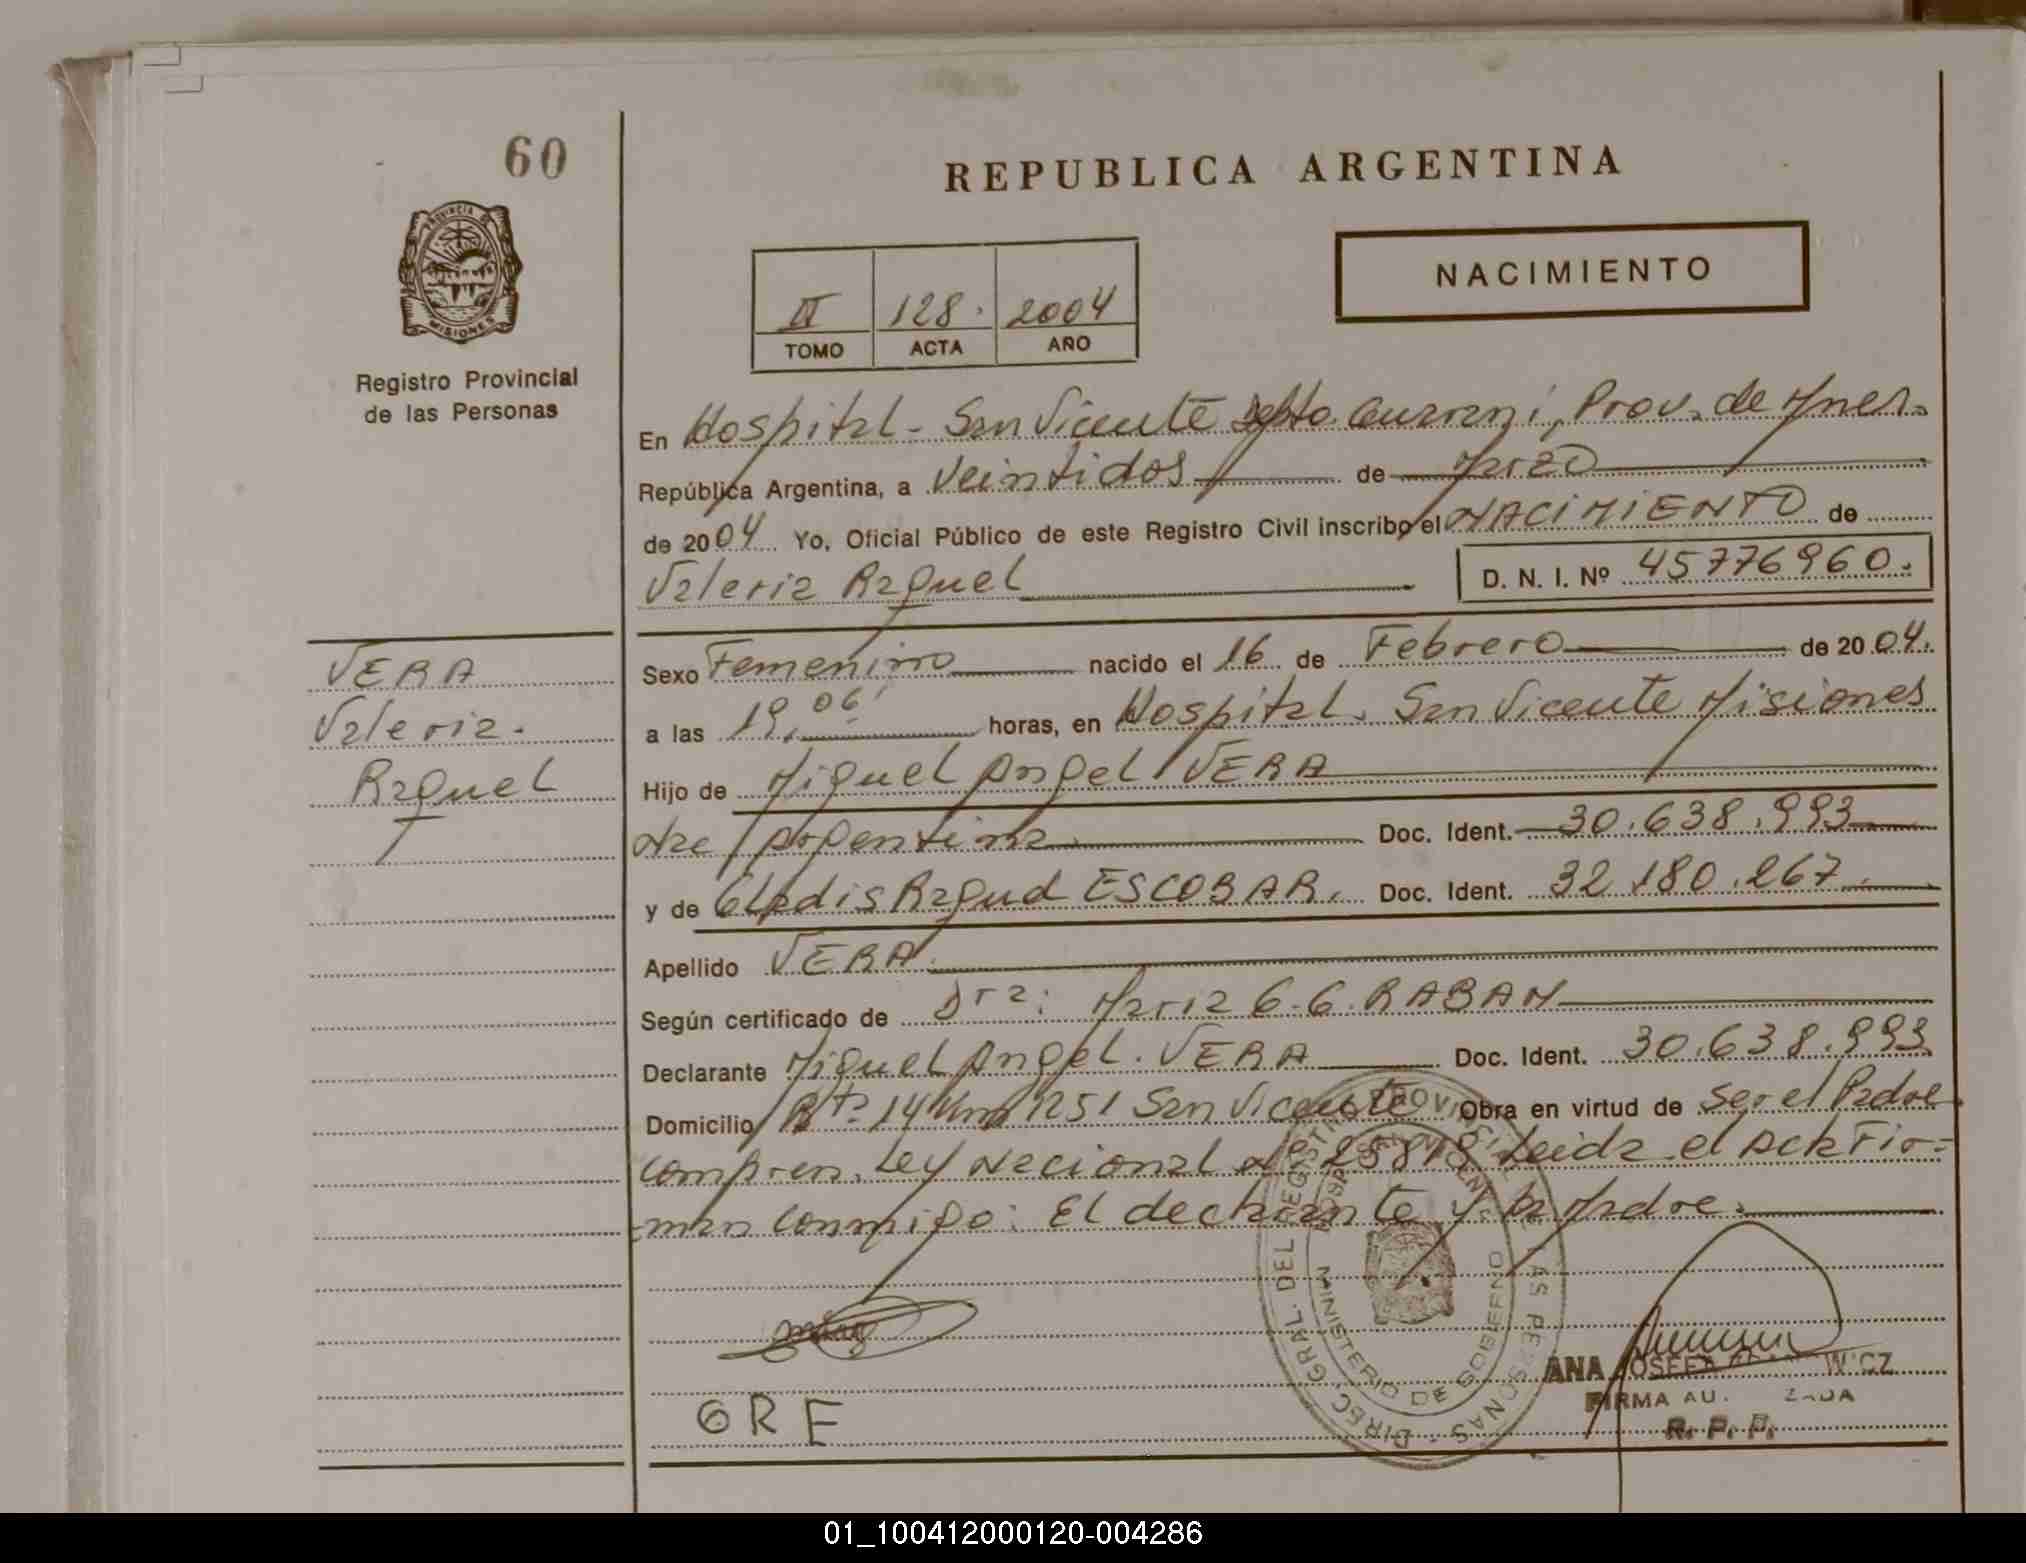 60
REPUBLICA ARGENTINA
PROVINCIA DE
MISIONES
Registro Provincial
de las Personas
NACIMIENTO
II 128. 2004
TOMO ACTA AÑO
En Hospital - San Vicente Dpto. Guarani, Prov. de Mnes.
República Argentina, a Veintidos de Marzo
de 2004 Yo, Oficial Público de este Registro Civil inscribo el NACIMIENTO de
Valeria Raquel
D. N. I. Nº 45776960.
VERA
Valeria.
Raquel
Sexo Femenino nacido el 16 de Febrero de 2004.
a las 19,06' horas, en Hospital. San Vicente Misiones
Hijo de Miguel Angel VERA
Nac Argentina. Doc. Ident. 30.638.993
y de Gladis Raquel ESCOBAR. Doc. Ident. 32.180.267.
Apellido VERA.
Según certificado de Dra: Maria G. G. RABAN
Declarante Miguel Angel. VERA Doc. Ident. 30.638.993
Domicilio Rta 14 Km 1251 San Vicente Obra en virtud de ser el Padre
Ley Nacional Nº 25819 Leida el Acta Fir=
=man Conmigo: El declarante y la Madre.
DIREC. GRAL. DEL REGISTRO PROVINCIAL DE LAS PERSONAS
MINISTERIO DE GOBIERNO
GRE
ANA JOSEFA
FIRMA
R. P. P.
01_100412000120-004286